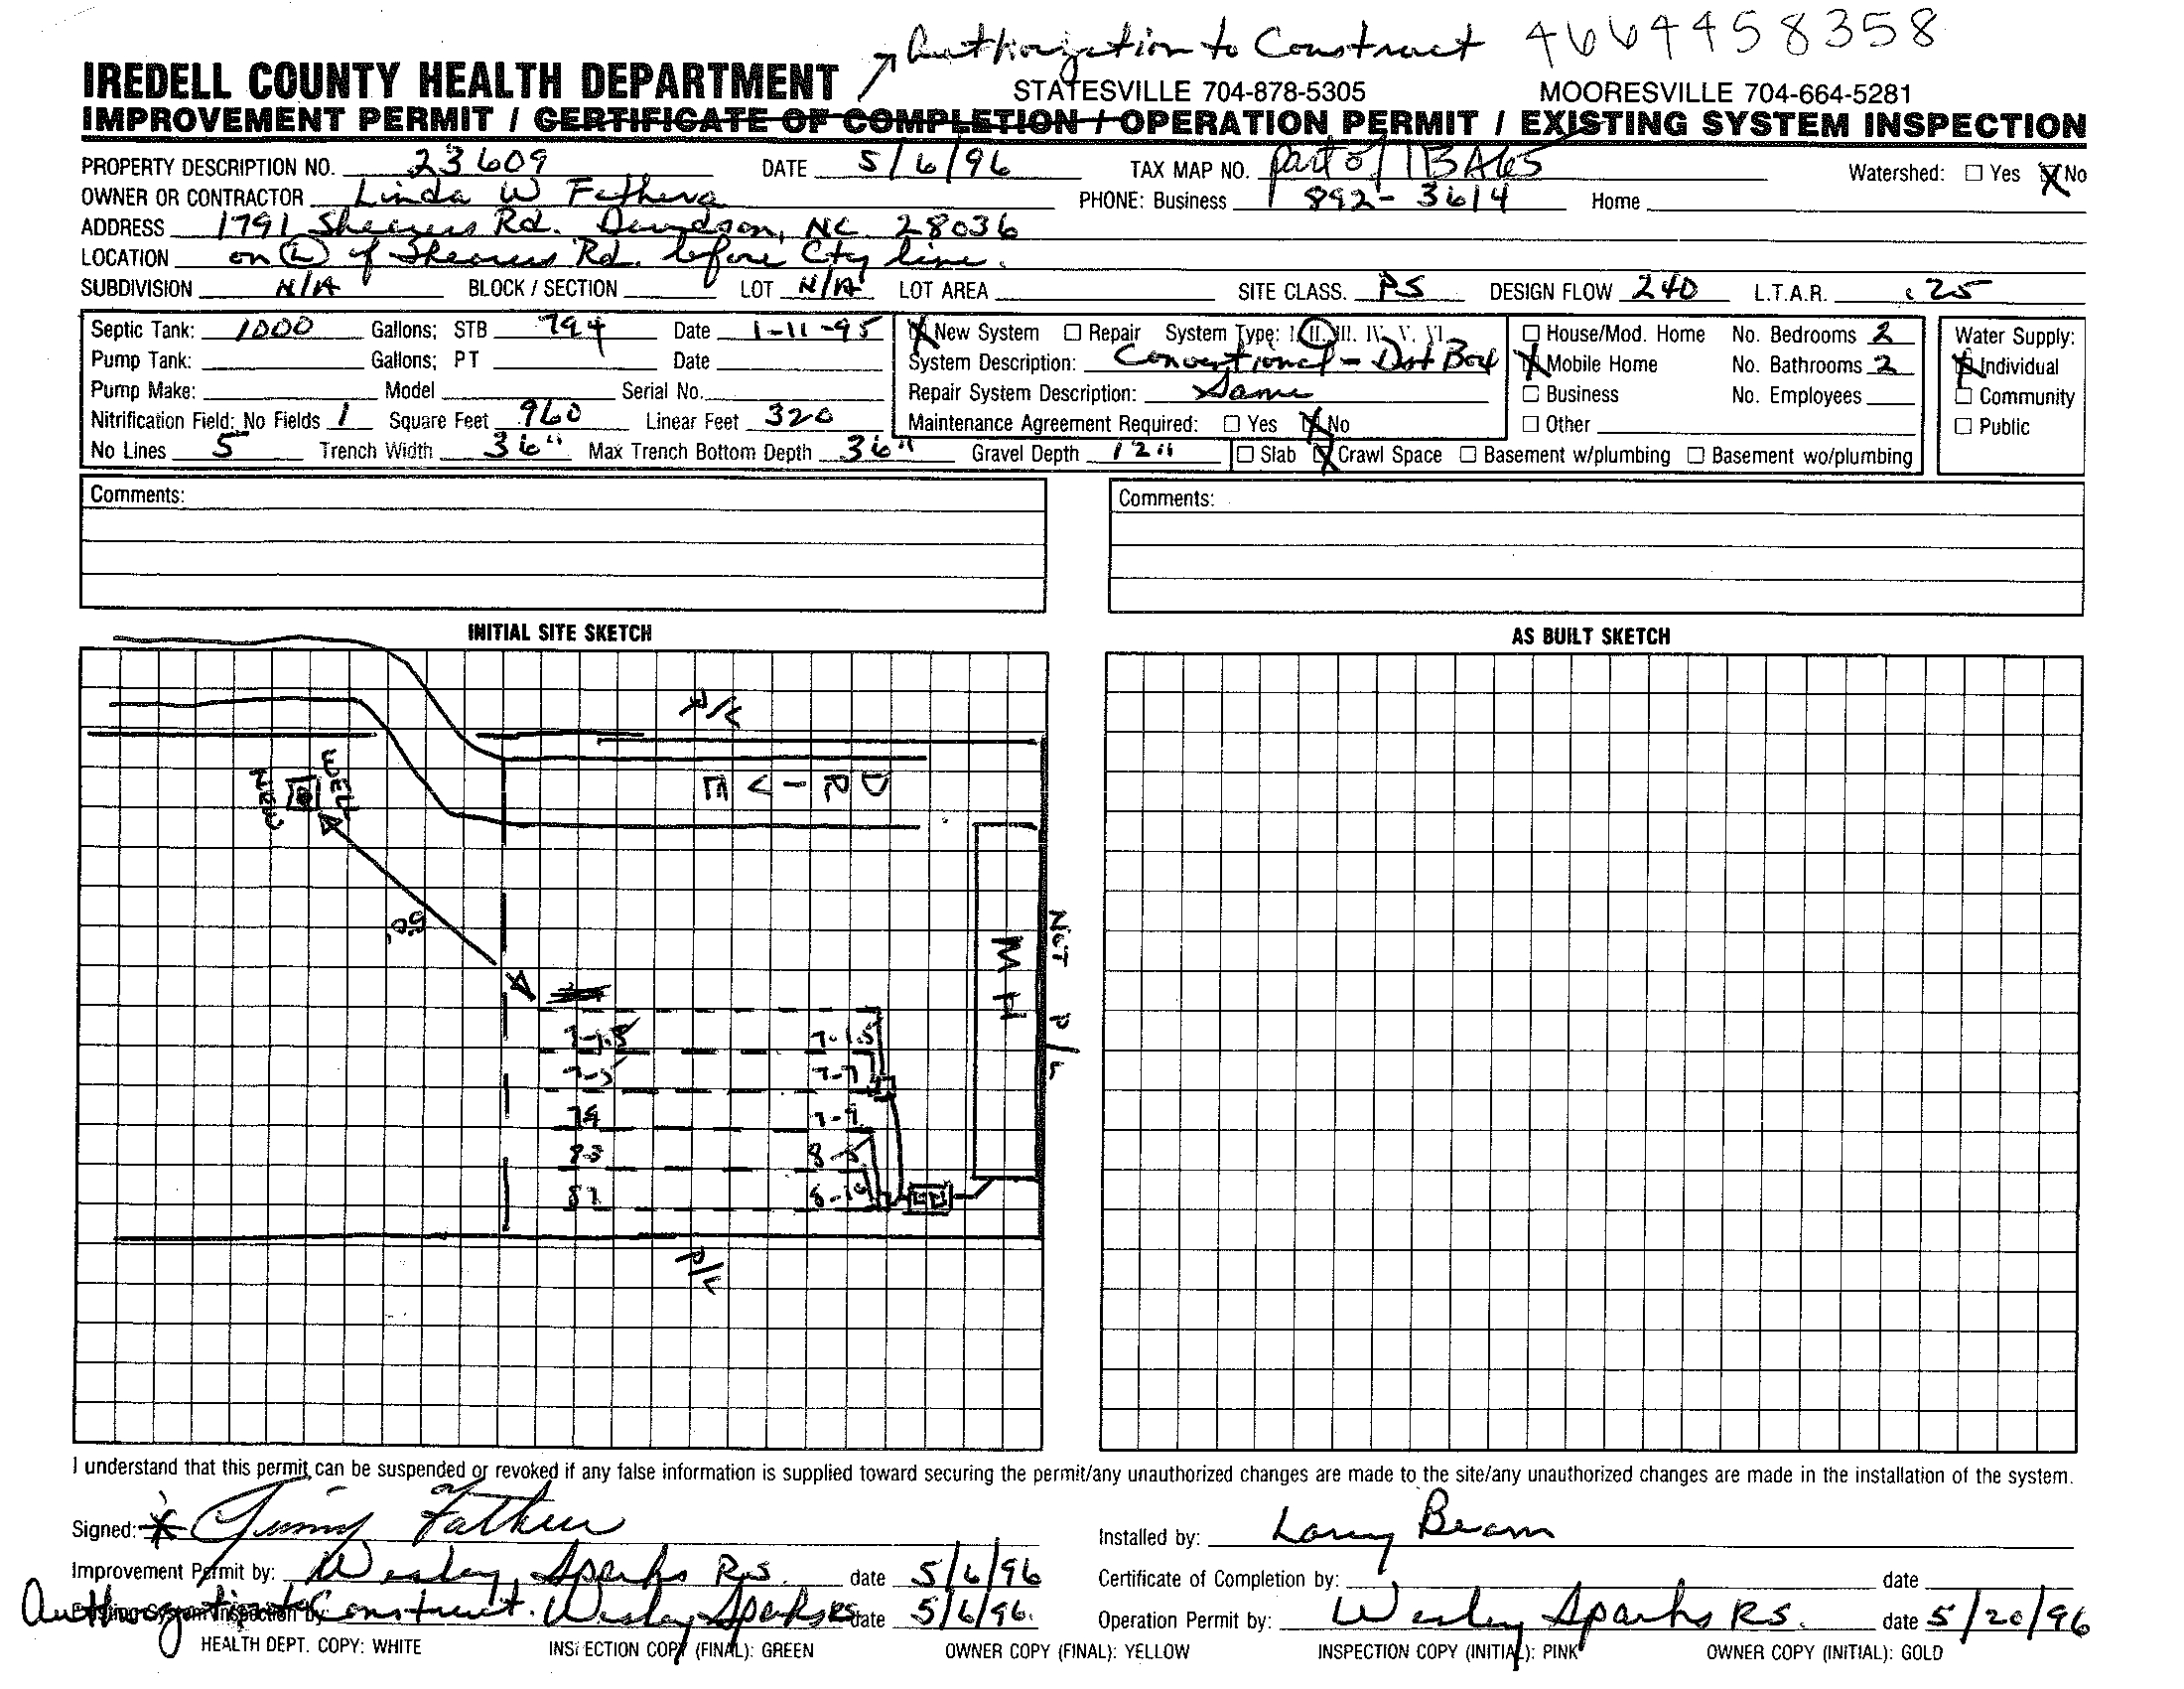 Authorization to Construct 4664458358
IREDELL COUNTY HEALTH DEPARTMENT
STATESVILLE 704-878-5305 MOORESVILLE 704-664-5281
IMPROVEMENT PERMIT / CERTIFICATE OF COMPLETION / OPERATION PERMIT / EXISTING SYSTEM INSPECTION
PROPERTY DESCRIPTION NO. 23609 DATE 5/6/96 TAX MAP NO. part of 1BA65 Watershed: ☐ Yes ☒ No
OWNER OR CONTRACTOR Linda W PHONE: Business 892-3614 Home
ADDRESS 1791 Shearers Rd. Davidson, NC 28036
LOCATION on (L) of Shearers Rd. before Cty line.
SUBDIVISION N/A BLOCK / SECTION LOT N/A LOT AREA SITE CLASS. PS DESIGN FLOW 240 L.T.A.R. .25
Septic Tank: 1000 Gallons; STB 794 Date 1-11-95
Pump Tank: Gallons; PT Date
Pump Make: Model Serial No.
Nitrification Field: No Fields 1 Square Feet 960 Linear Feet 320
No Lines 5 Trench Width 36" Max Trench Bottom Depth 36" Gravel Depth 12"
☒ New System ☐ Repair System Type: I. II. III. IV. V. VI.
System Description: Conventional - Dist Box
Repair System Description: Same
Maintenance Agreement Required: ☐ Yes ☒ No
☐ House/Mod. Home No. Bedrooms 2
☒ Mobile Home No. Bathrooms 2
☐ Business No. Employees
☐ Other
☐ Slab ☒ Crawl Space ☐ Basement w/plumbing ☐ Basement wo/plumbing
Water Supply:
☒ Individual
☐ Community
☐ Public
Comments:
Comments:
INITIAL SITE SKETCH
AS BUILT SKETCH
P/L
DRIVE
NEW
WELL
60'
MH
NOT P/L
7-1.5
7-5
7-7
7-9
83
87
8-10
P/L
I understand that this permit can be suspended or revoked if any false information is supplied toward securing the permit/any unauthorized changes are made to the site/any unauthorized changes are made in the installation of the system.
Signed: Installed by: Larry Beam
Improvement Permit by: Wesley Sparks R.S. date 5/6/96 Certificate of Completion by: date
Authorization to Construct. Wesley Sparks RS date 5/6/96. Operation Permit by: Wesley Sparks R.S. date 5/20/96
HEALTH DEPT. COPY: WHITE INSPECTION COPY (FINAL): GREEN OWNER COPY (FINAL): YELLOW INSPECTION COPY (INITIAL): PINK OWNER COPY (INITIAL): GOLD